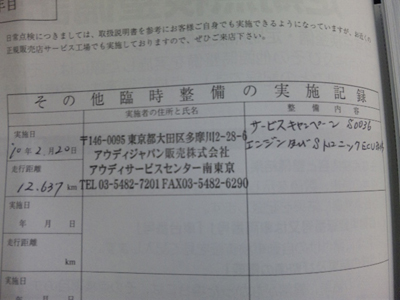 年目
日常点検につきましては、取扱説明書を参考にお客様ご自身でも実施できるようになっていますが、お近くの
正規販売店サービス工場でも実施しておりますので、ぜひご来店下さい。
その他臨時整備の実施記録
実施者の住所と氏名
整備内容
実施日
10年2月20日
走行距離
12,637 km
〒146-0095 東京都大田区多摩川2-28-6
アウディジャパン販売株式会社
アウディサービスセンター南東京
TEL 03-5482-7201 FAX03-5482-6290
サービスキャンペーン S0036
エンジン及びSトロニックECU
実施日
年 月 日
走行距離
km
実施日
年 月 日